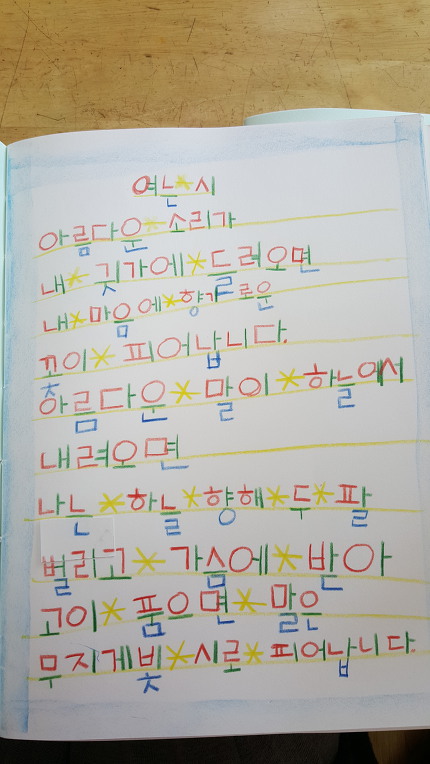 여는*시
아름다운*소리가
내*귓가에*들려오면
내*마음에*향기로운
꽃이*피어납니다.
아름다운*말이*하늘에서
내려오면
나는*하늘*향해*두*팔
벌리고*가슴에*받아
고이*품으면*맑은
무지게빛*시로*피어납니다.